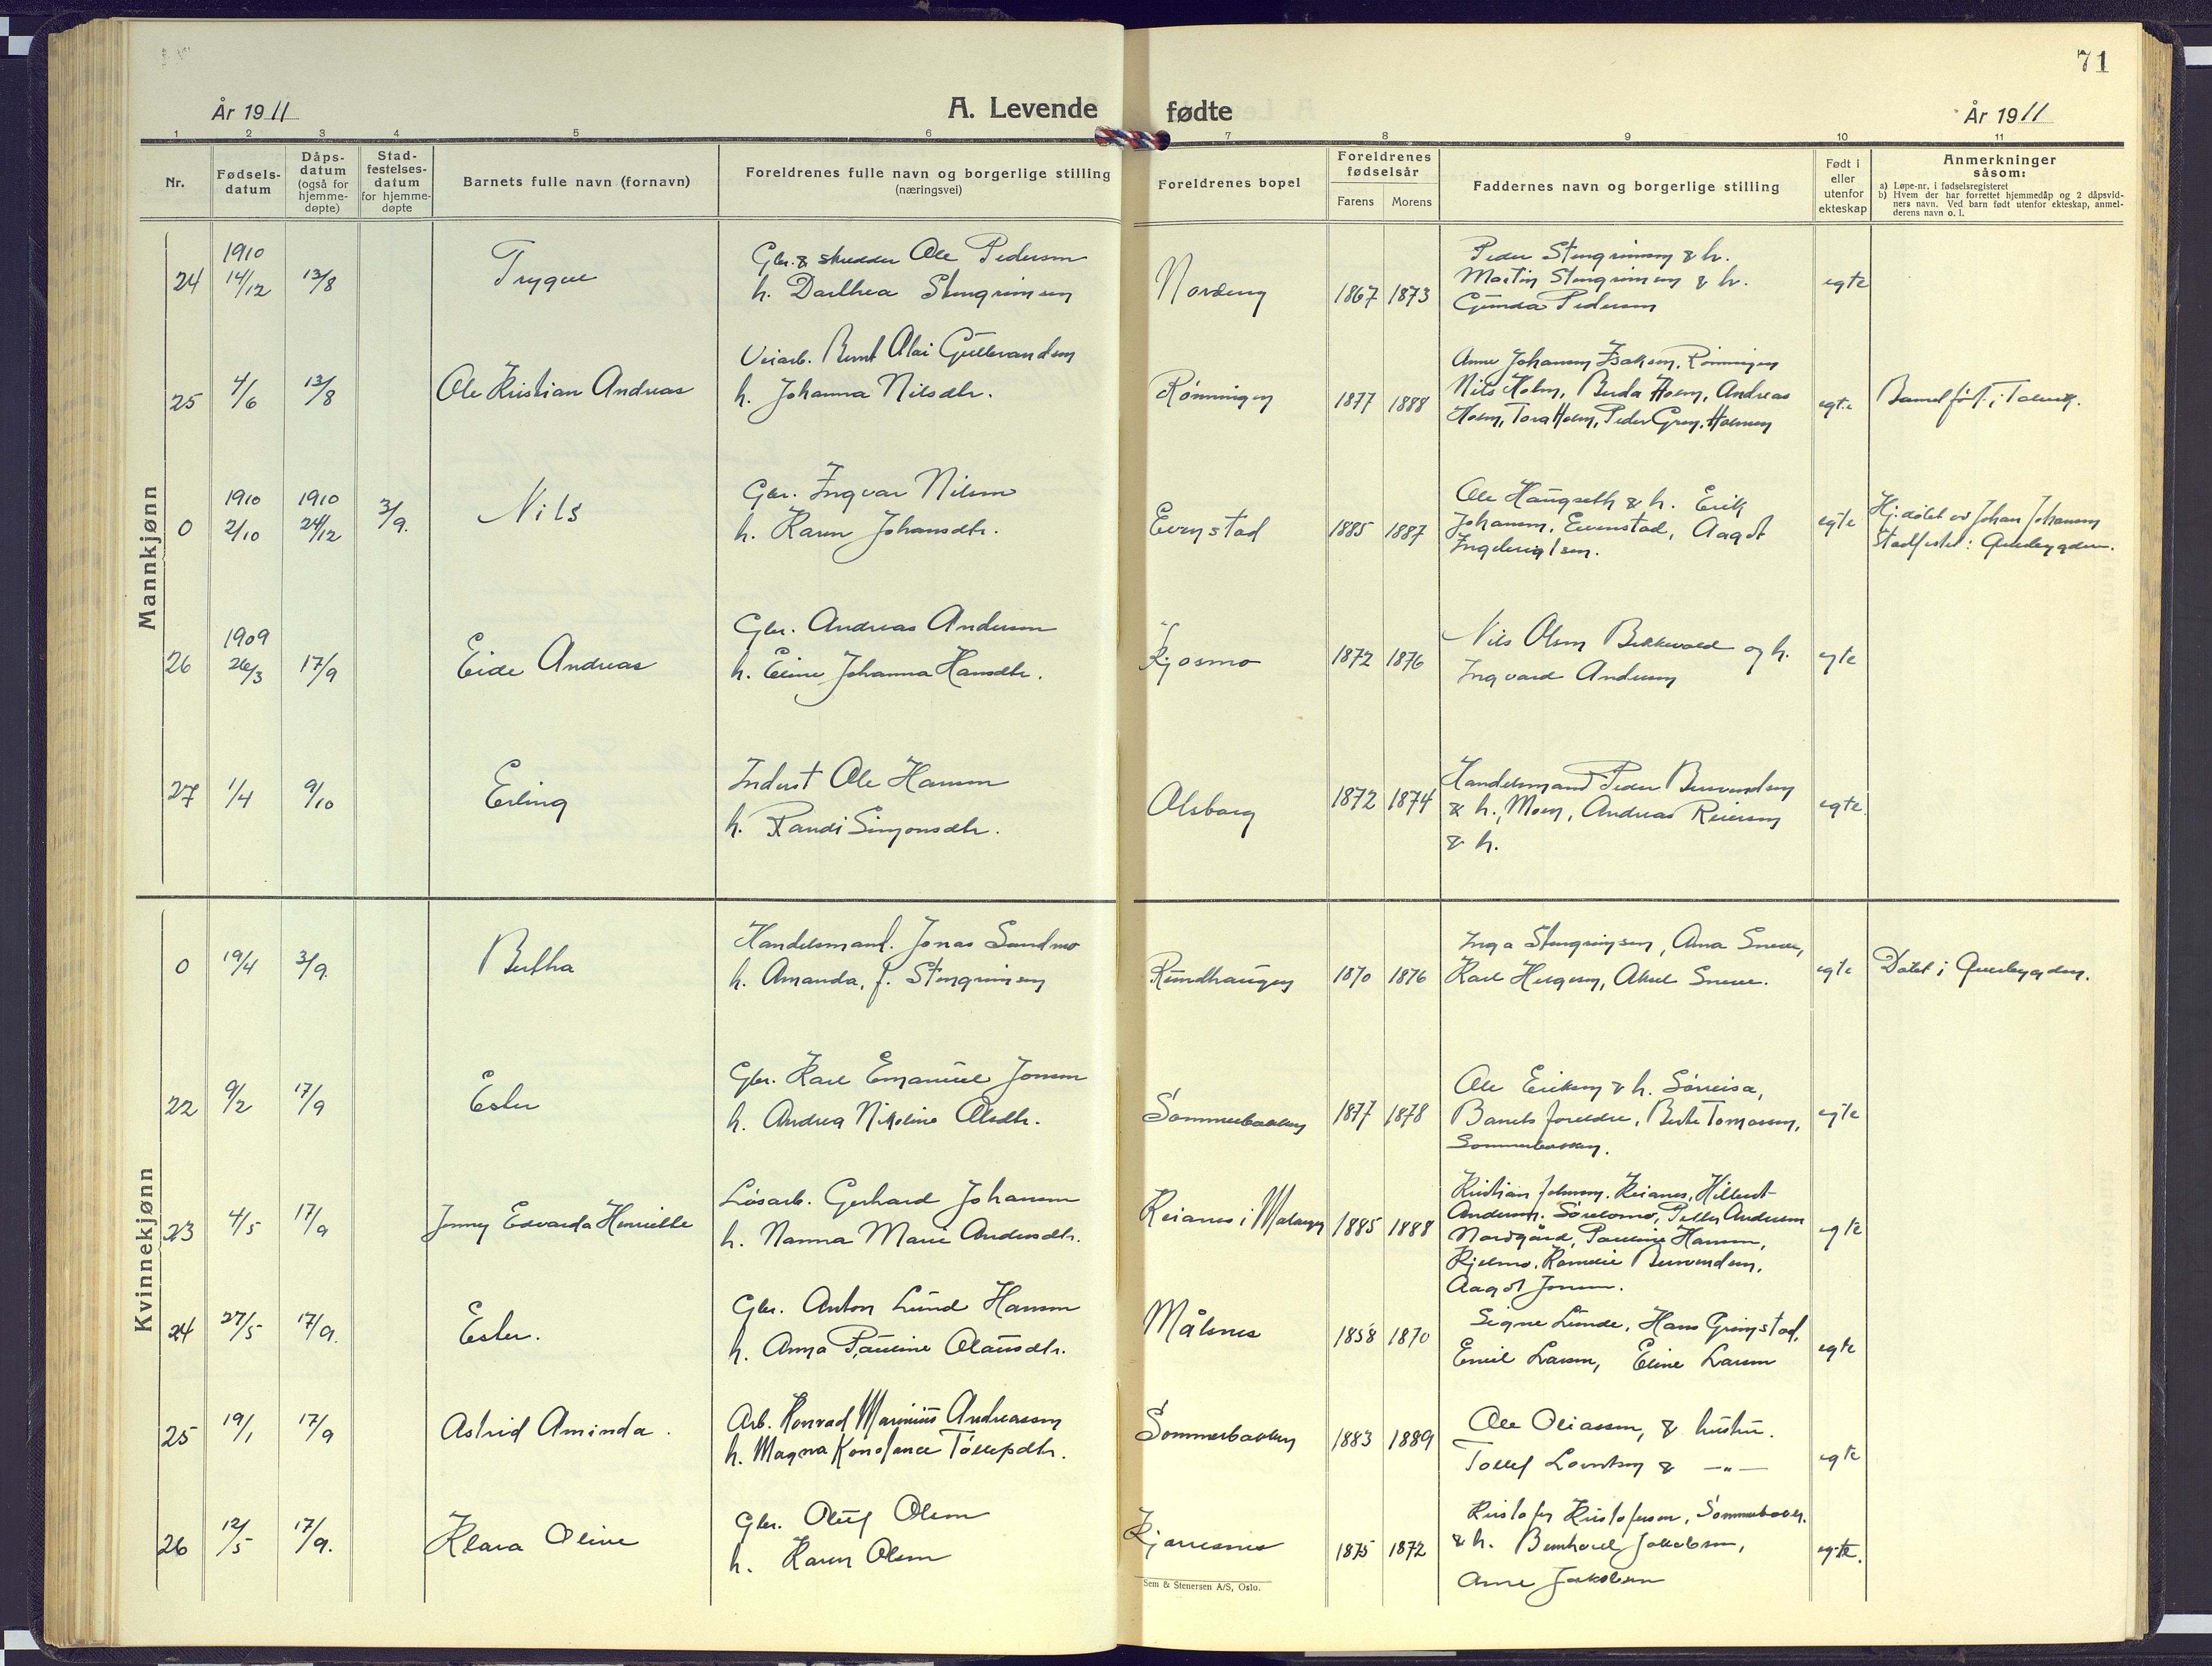 71
År 1911
A. Levende fødte
År 1911
1 2 3 4 5 6 7 8 9 10 11
Nr.
Fødsels-
datum
Dåps-
datum
(også for
hjemme-
døpte)
Stad-
festelses-
datum
for hjemme-
døpte
Barnets fulle navn (fornavn)
Foreldrenes fulle navn og borgerlige stilling
(næringsvei)
Foreldrenes bopel
Foreldrenes
fødselsår
Farens Morens
Faddernes navn og borgerlige stilling
Født i
eller
utenfor
ekteskap
Anmerkninger
såsom:
a) Løpe-nr. i fødselsregisteret
b) Hvem der har forrettet hjemmedåp og 2 dåpsvid-
ners navn. Ved barn født utenfor ekteskap, anmel-
derens navn o. l.
Mannkjønn
24 1910 14/12 13/8 Trygve
Gbr. & skredder Ole Pedersen
h. Dorthea Stengrimsen
Nordeng 1867 1873
Peder Stengrimsen & h.
Martin Stengrimsen & h.
Gunda Pedersen
egte
25 4/6 13/8 Ole Kristian Andreas
Veiarb. Bernt Olai Gulbrandsen
h. Johanna Nilsdtr.
Rønningen 1877 1888
Anne Johansen Isaksen, Rønningen
Nils Holm, Berda Hoem, Andreas
Hoem, Tora Hoem, Peder Holmen
egte
Barnet født i
0 1910 2/10 1910 24/12 3/9. Nils
Gbr. Ingvar Nilsen
h. Karen Johansdtr.
Evenstad 1885 1887
Ole Haugseth & h. Erik
Johansen, Evenstad, Aagot
Ingebrigtsen.
egte
Hj. døbt av Johan Johansen
Stadfestet: Øverbygden.
26 1909 26/3 17/9 Eide Andreas
Gbr. Andreas Andersen
h. Eline Johanna Hansdtr.
Kjosmo 1872 1876
Nils Olsen Bakkevold og h.
Ingvard Andersen
egte
27 1/4 9/10 Erling
Inderst Ole Hansen
h. Randi Simonsdtr.
Olsborg 1872 1874
Handelsmand Peder Bersvendsen
& h., Moen, Andreas Reiersen
& h.
egte.
Kvinnekjønn
0 19/4 3/9. Bertha
Handelsmand. Jonas Sandmo
h. Amanda, f. Stengrimsen
Rundhaugen 1870 1876
Inga Stengrimsen, Anna Sneve,
Karl Helgesen, Aksel Sneve.
egte
Døbt i Øverbygden.
22 9/2 17/9 Ester
Gbr. Karl Emanuel Jensen
h. Andrea Nikoline Olsdtr.
Sommerbakken 1877 1878
Ole Eriksen & h. Sørreisa,
Barnets foreldre, Berte Tomassen,
Sommerbakken.
egte
23 4/5 17/9 Jenny Edvarda Henriette
Løsarb. Gerhard Johansen
h. Nanna Marie Andersdtr.
Keianes i Malangen 1885 1888
Kristian Johnsen, Keianes, Hilbert
Andersen. Petter Andersen
Nordgård, Pauline Hansen,
Kjelmo, Kornelie Bersvendsen,
Aagot Jensen.
egte
24 27/5 17/9. Ester.
Gbr. Anton Lund Hansen
h. Anna Pauline Olausdtr.
Målsnes 1858 1870
Signe Lunde, Hans Grimstad,
Emil Larsen, Eline Larsen
egte
25 19/1 17/9 Astrid Aminda.
Arb. Konrad Marinius Andreassen
h. Magna Konstance Tollefsdtr.
Sommerbakken 1883 1889
Ole Oliassen, & hustru.
Tollef Lorntsen & —"—
egte
26 12/5 17/9. Klara Oline
Gbr. Oluf Olsen
h. Karen Olsen
Kjerresnes 1875 1872
Kristofer Kristofersen, Sommerbakk.
& h. Bernhard Jakobsen,
Arne Jakobsen
egte.
Sem & Stenersen A/S, Oslo.